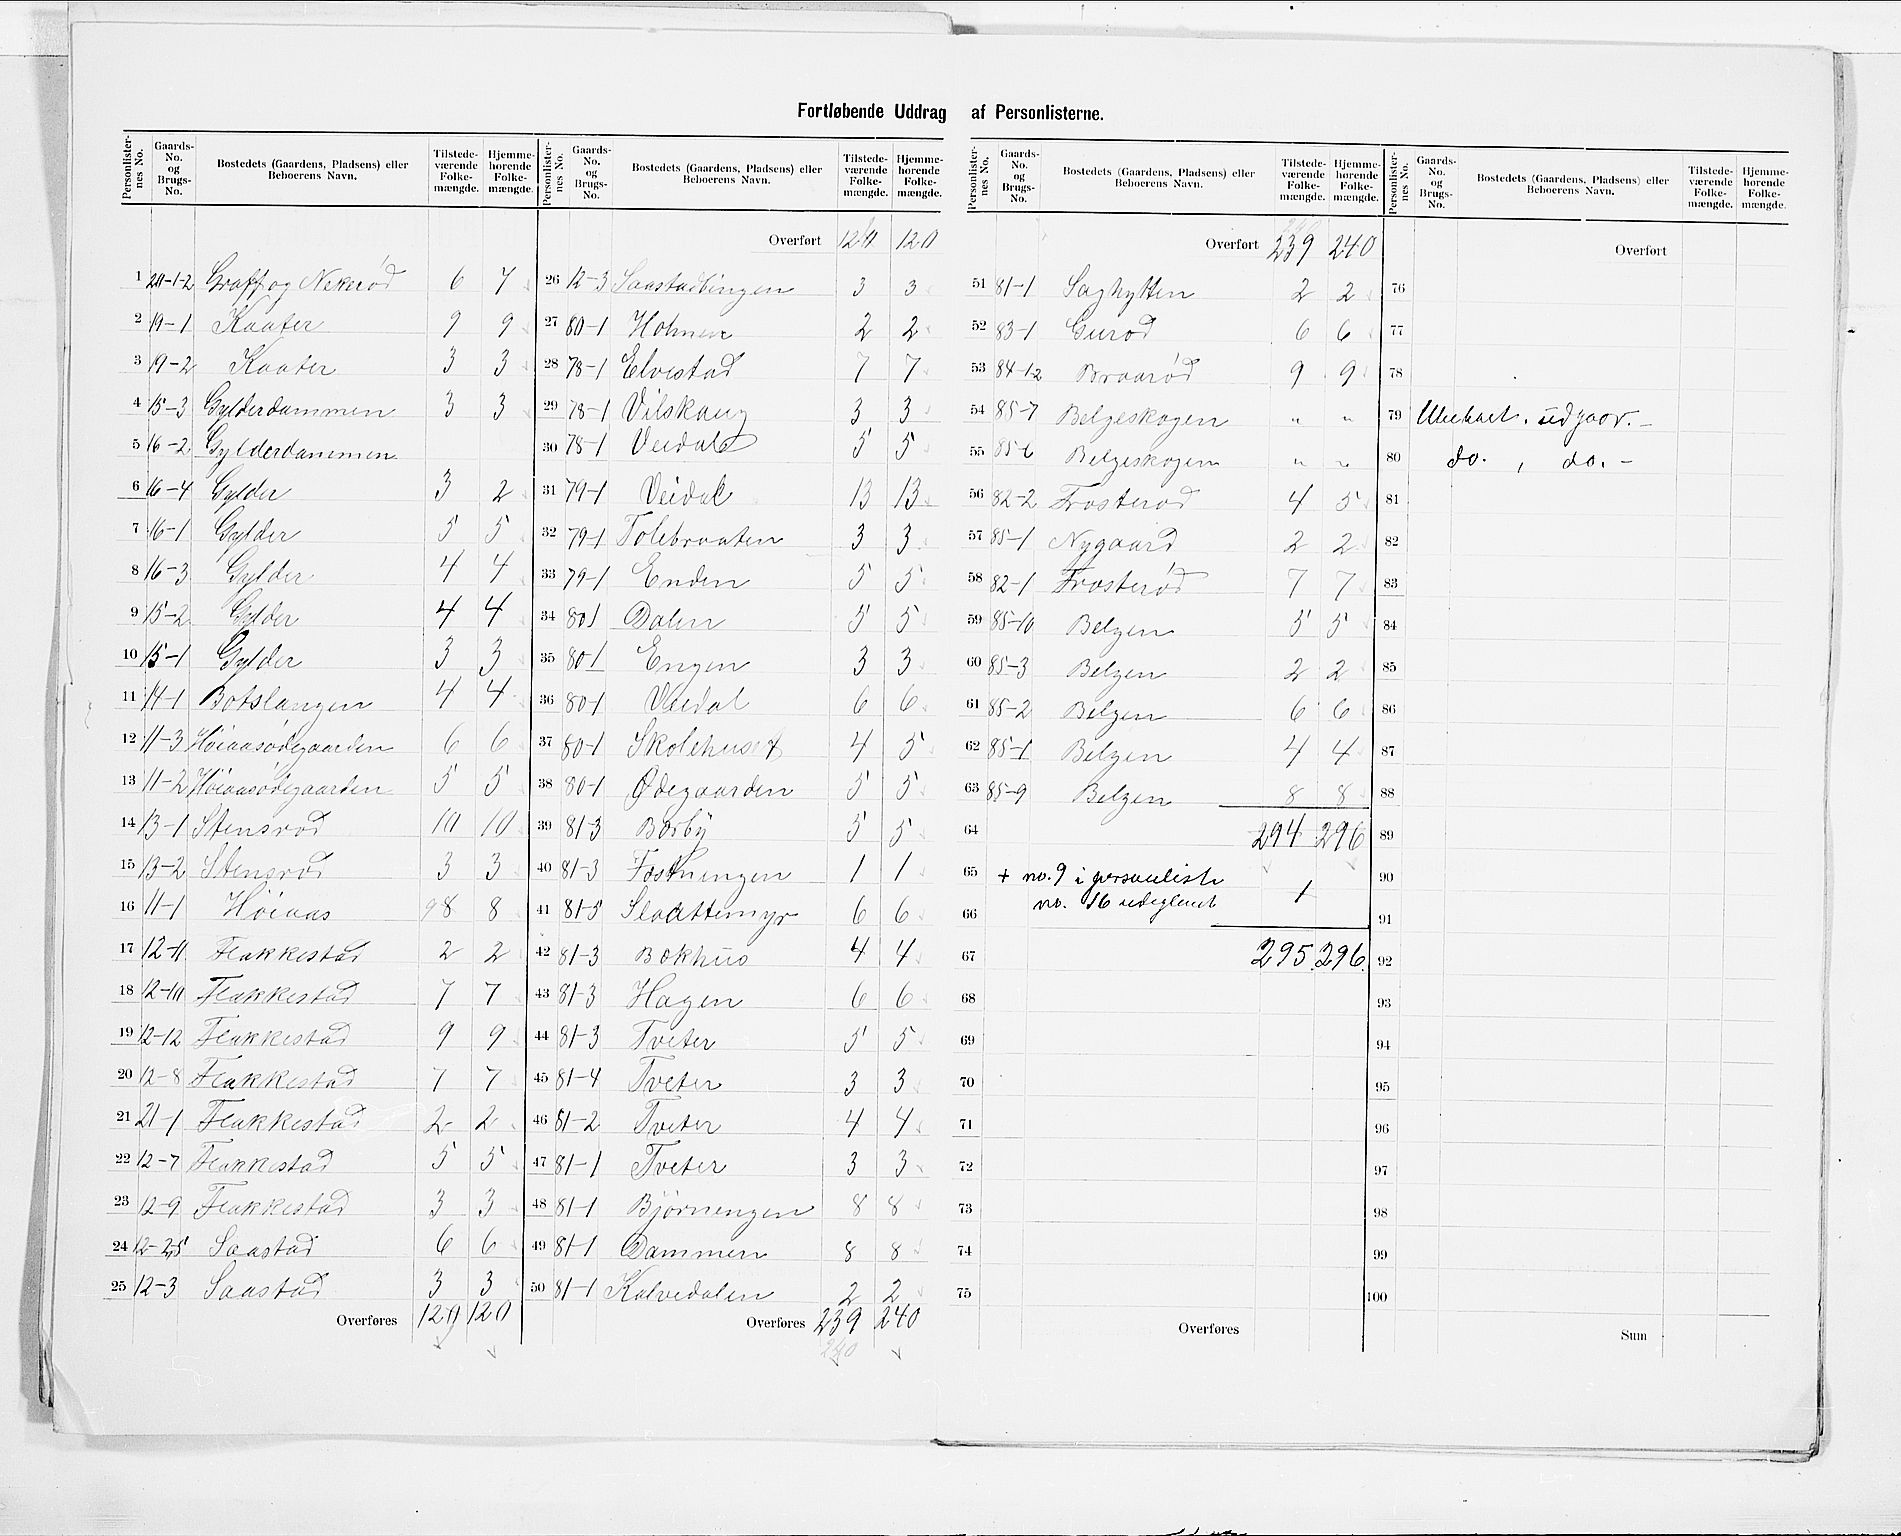 Fortløbende Uddrag af Personlisterne.
Personlisternes No. Gaards-No. og Brugs-No. Bostedets (Gaardens, Pladsens) eller Beboerens Navn. Tilstedeværende Folkemængde. Hjemmehørende Folkemængde.
1 20-1-2 Graff og Nekerød 6 7
2 19-1 Kaater 9 9
3 19-2 Kaater 3 3
4 15-3 Gylderdammen 3 3
5 16-2 Gylderdammen
6 16-4 Gylder 3 2
7 16-1 Gylder 5 5
8 16-3 Gylder 4 4
9 15-2 Gylder 4 4
10 15-1 Gylder 3 3
11 14-1 Botslangen 4 4
12 11-3 Høiaasødegaarden 6 6
13 11-2 Høiaasødegaarden 5 5
14 13-1 Stensrød 10 10
15 13-2 Stensrød 3 3
16 11-1 Høiaas 98 8
17 12-11 Flakkestad 2 2
18 12-10 Flakkestad 7 7
19 12-12 Flakkestad 9 9
20 12-8 Flakkestad 7 7
21 21-1 Flakkestad 2 2
22 12-7 Flakkestad 5 5
23 12-9 Flakkestad 3 3
24 12-2,5 Saastad 6 6
25 12-3 Saastad 3 3
Overføres 120 120
Personlisternes No. Gaards-No. og Brugs-No. Bostedets (Gaardens, Pladsens) eller Beboerens Navn. Tilstedeværende Folkemængde. Hjemmehørende Folkemængde.
Overført 120 120
26 12-3 Saastadbingen 3 3
27 80-1 Holmen 2 2
28 78-1 Elvestad 7 7
29 78-1 Vilskaug 3 3
30 78-1 Veidal 5 5
31 79-1 Veidal 13 13
32 79-1 Tolebraaten 3 3
33 79-1 Enden 5 5
34 80 1 Dalen 5 5
35 80-1 Engen 3 3
36 80-1 Veidal 6 6
37 80-1 Skolehuset 4 5
38 80-1 Ødegaarden 5 5
39 81-3 Borby 5 5
40 81-3 Fostningen 1 1
41 81-5 Slaattemyr 6 6
42 81-3 Bakhus 4 4
43 81-3 Hagen 6 6
44 81-3 Tveter 5 5
45 81-4 Tveter 3 3
46 81-2 Tveter 4 4
47 81-1 Tveter 3 3
48 81-1 Bjørningen 8 8
49 81-1 Dammen 8 8
50 81-1 Kalvedalen 2 2
Overføres 239 240
240
Personlisternes No. Gaards-No. og Brugs-No. Bostedets (Gaardens, Pladsens) eller Beboerens Navn. Tilstedeværende Folkemængde. Hjemmehørende Folkemængde.
Overført 239 240
51 81-1 Saghytten 2 2
52 83-1 Gurød 6 6
53 84-1-2 Braarød 9 9
54 85-7 Belgeskogen " "
55 85-6 Belgeskogen " "
56 82-2 Frosterød 4 5
57 85-1 Nygaard 2 2
58 82-1 Frosterød 7 7
59 85-10 Belgen 5 5
60 85-3 Belgen 2 2
61 85-2 Belgen 6 6
62 85-1 Belgen 4 4
63 85-9 Belgen 8 8
64 294 296
65 + no. 9 i personliste 1
66 no. 16 udeglemt
67 295 296
68
69
70
71
72
73
74
75
Overføres
Personlisternes No. Gaards-No. og Brugs-No. Bostedets (Gaardens, Pladsens) eller Beboerens Navn. Tilstedeværende Folkemængde. Hjemmehørende Folkemængde.
Overført
76
77
78
79 Ubeboet, udgaar. -
80 do. , do. -
81
82
83
84
85
86
87
88
89
90
91
92
93
94
95
96
97
98
99
100
Sum